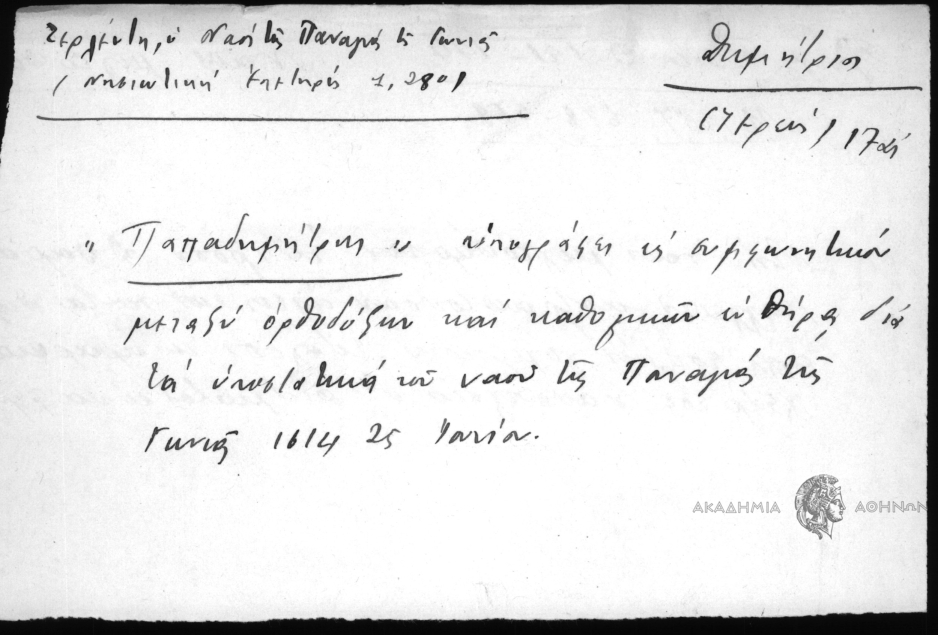 Ζερλέντη, ὁ Ναὸς τῆς Παναγιᾶς τῆς Γωνιᾶς
( Νησιωτικὴ Ἐπετηρὶς 1, 280)
Δημήτριος
(Ἱερεύς) 17 αἰ
"Παπαδημήτρης" ὑπογράφει εἰς συμφωνητικόν
μεταξὺ ὀρθοδόξων καὶ καθολικῶν ἐν Θήρᾳ διὰ
τὰ ὑποστατικὰ τοῦ ναοῦ τῆς Παναγιᾶς τῆς
Γωνιᾶς 1614 25 Ἰουνίου.
ΑΚΑΔΗΜΙΑ ΑΘΗΝΩΝ